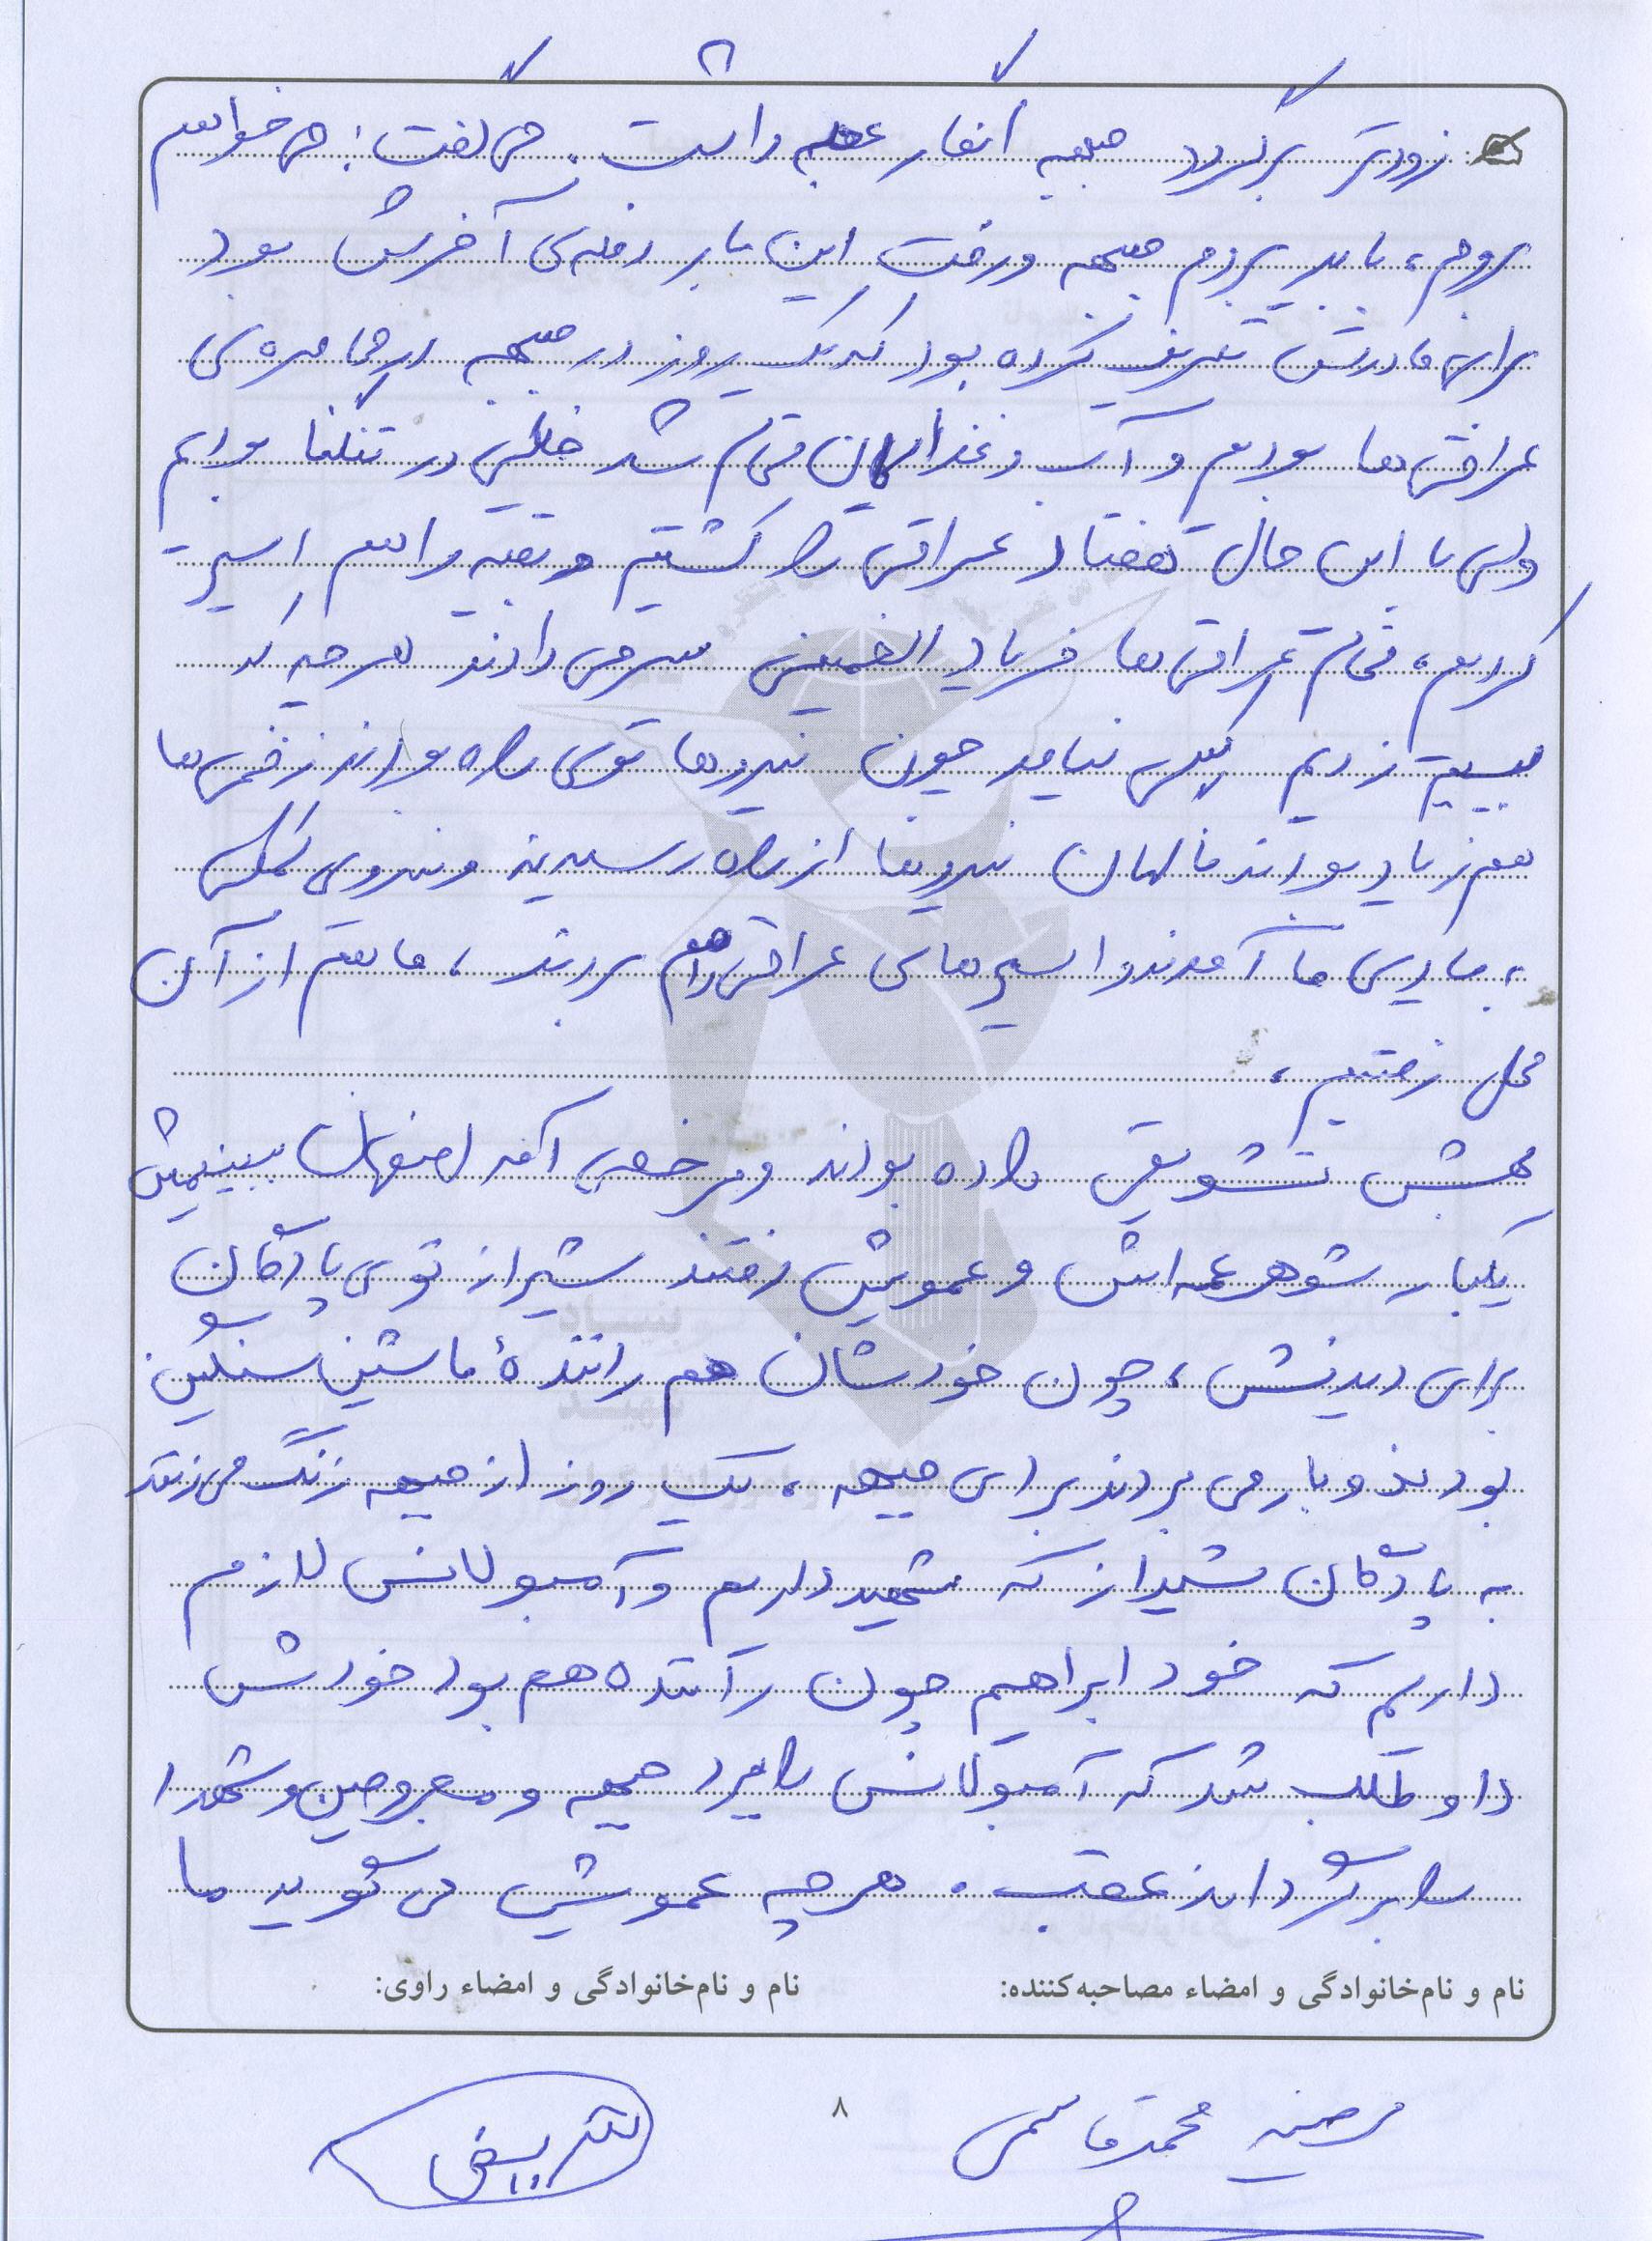 زودتر برگردد جبهه انگار عجله داشت. می گفت: می خواهم
بروم، باید بروم جبهه و رفت این بار دفعه‌ی آخرش بود
برای مادرش تعریف کرده بود که یک روز در جبهه در محاصره‌ی
عراقی‌ها بودیم و آب و غذایمان تمام شد خیلی در تنگنا بودیم
ولی با این حال هفتاد عراقی را کشتیم و بقیه را هم اسیر
کردیم، تمام عراقی‌ها فریاد الخمینی سر می دادند هر چه که
بیسیم زدیم کمکی نیامد چون نیروها توی راه بودند زخمی‌ها
هم زیاد بودند ناگهان نیروها از راه رسیدند و نیروی کمکی
به یاری ما آمدند و اسیرهای عراقی را هم بردند، ما هم از آن
محل رفتیم،
بهش تشویقی داده بودند و مرخصی آمد اصفهان ببینیمش
یکبار شوهر عمه اش و عمویش رفتند شیراز توی پادگان
برای دیدنش، چون خودشان هم رانندهٔ ماشین سنگین
بودند و بار می بردند برای جبهه، یک روز از جبهه زنگ می زنند
به پادگان شیراز که شهید داریم و آمبولانس لازم
داریم که خود ابراهیم چون راننده هم بود خودش
داوطلب شد که آمبولانس را ببرد جبهه و مجروحین و شهدا
را برگرداند عقب. هر چه عمویش می گوید ما
نام و نام‌خانوادگی و امضاء مصاحبه‌کننده:
نام و نام‌خانوادگی و امضاء راوی:
مرضیه محمدقاسمی
۸
شریفی